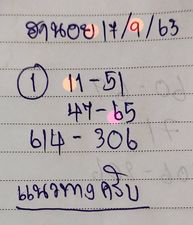 ฮานอย 17/9/63
① 11-51
47-65
614-306
แนวทางครับ